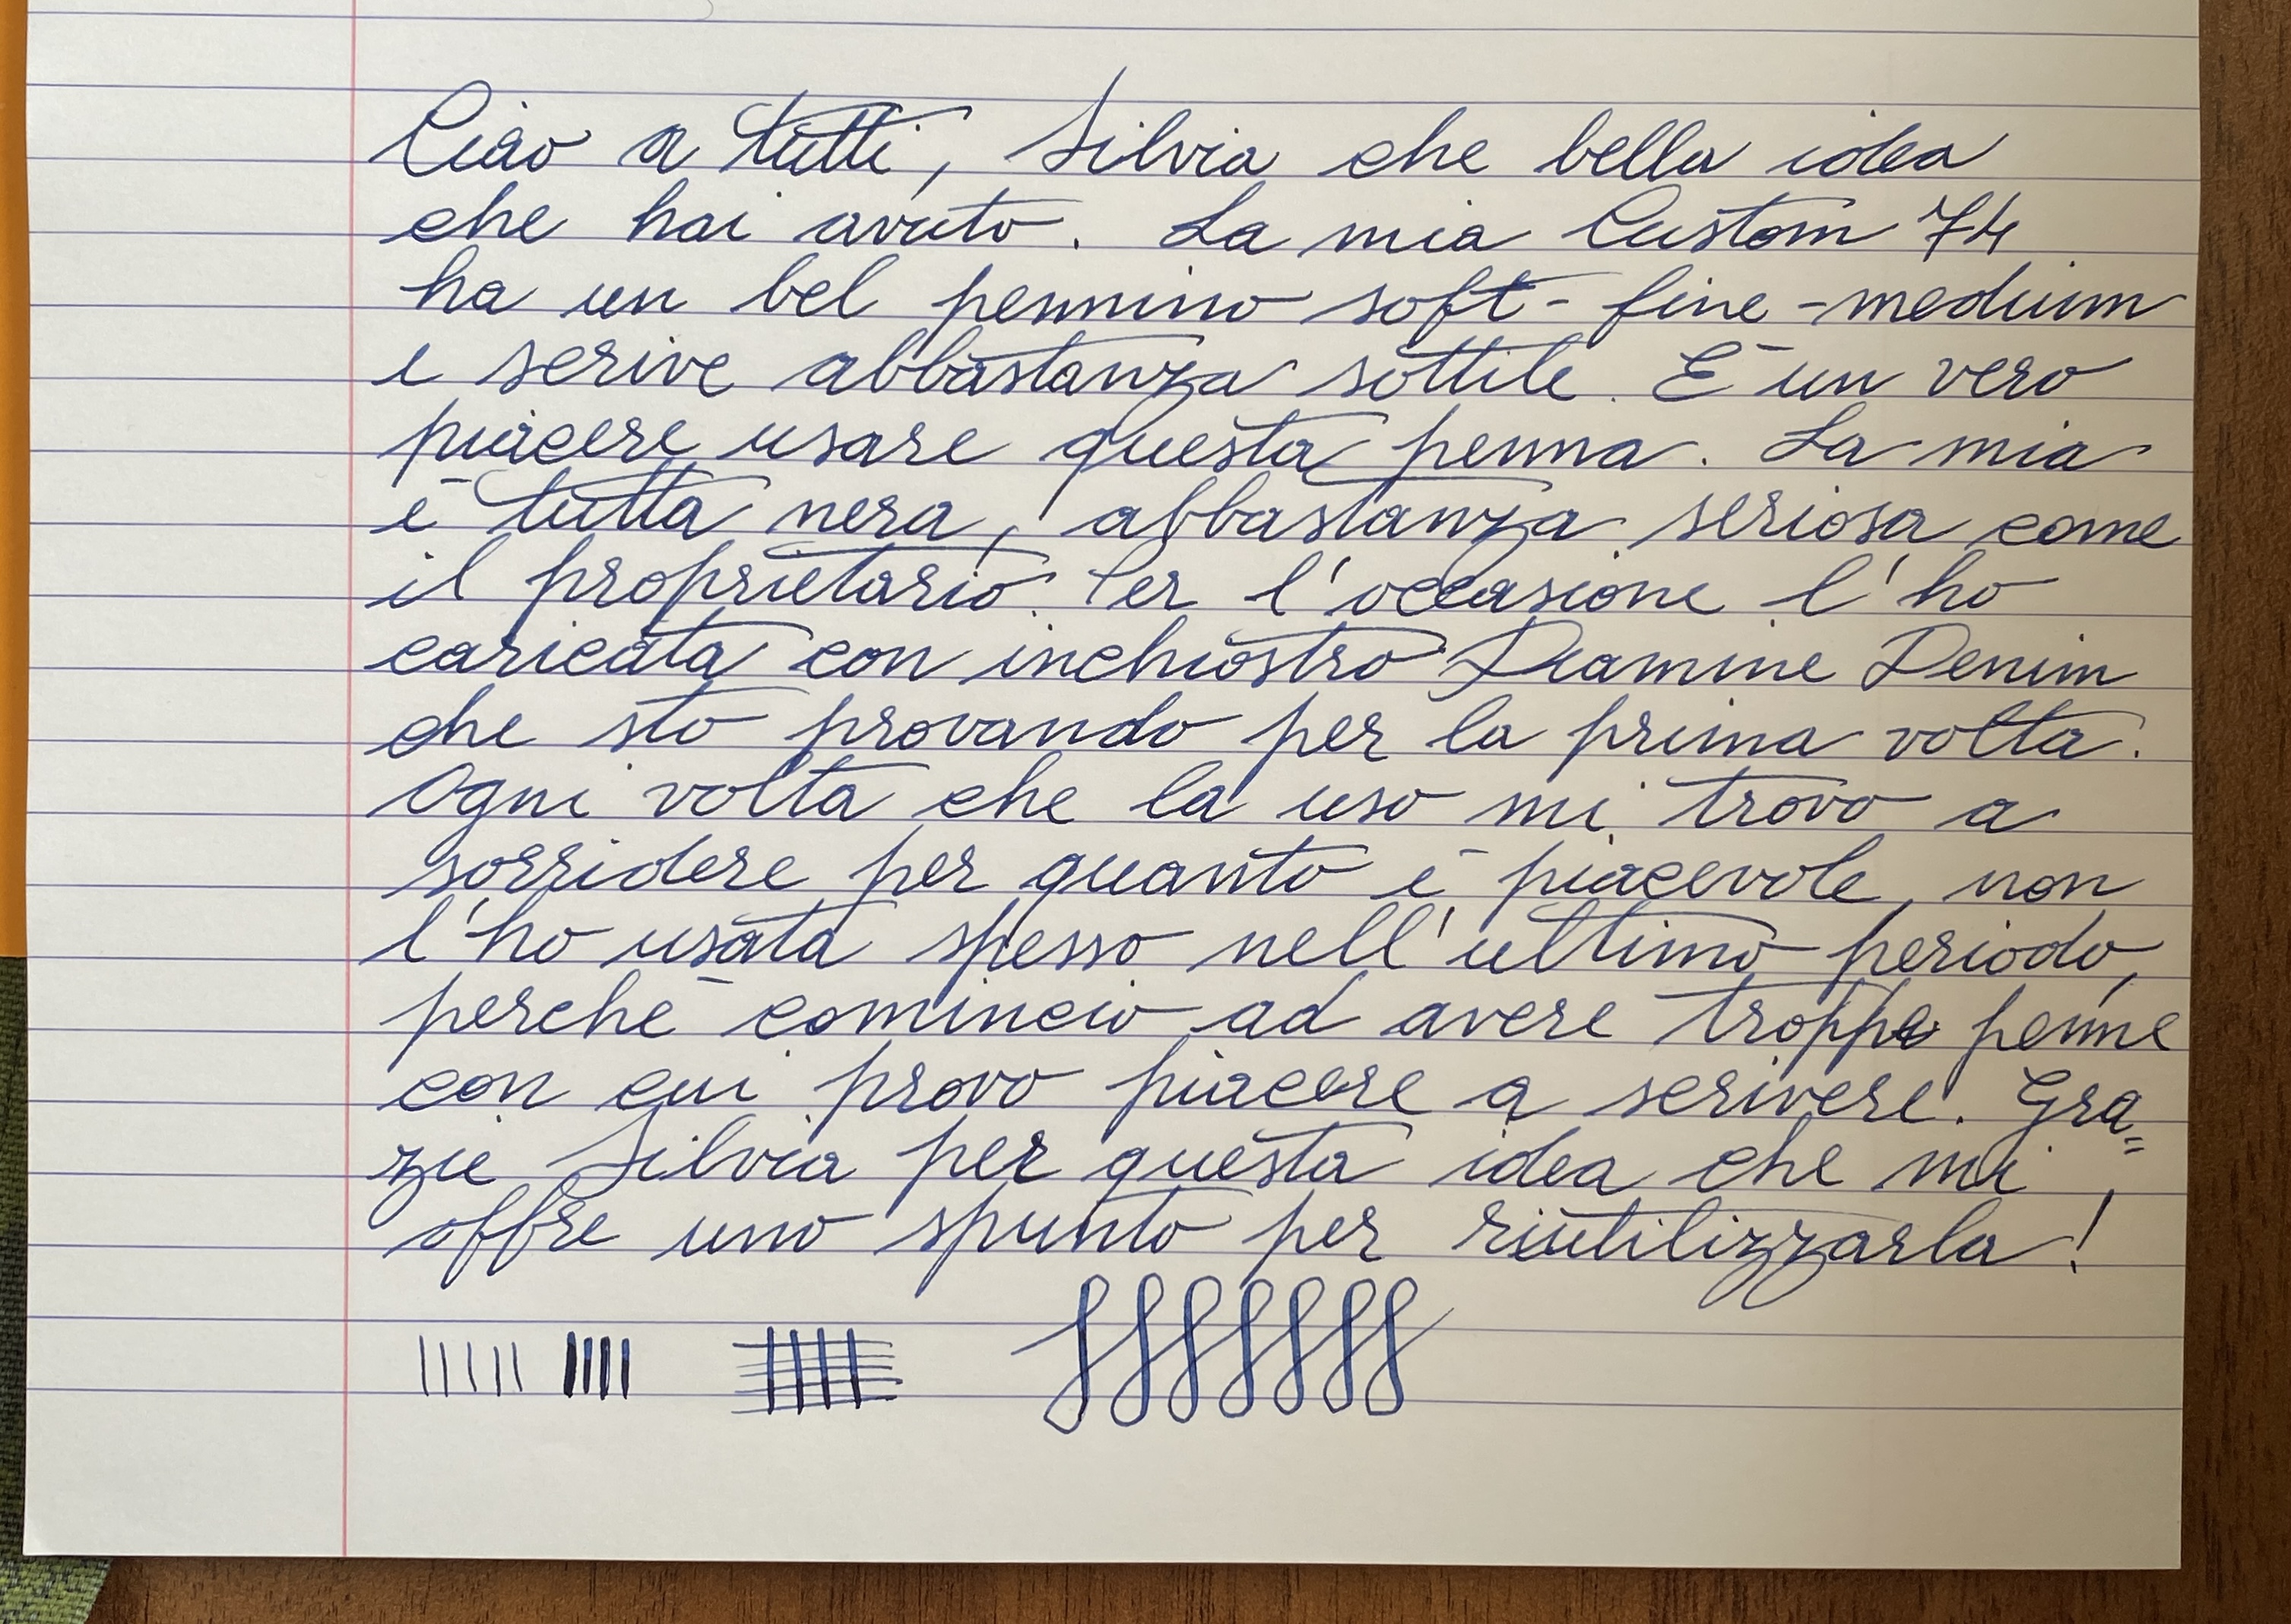 Ciao a tutti, Silvia che bella idea
che hai avuto. La mia Custom 74
ha un bel pennino soft-fine-medium
e scrive abbastanza sottile. È un vero
piacere usare questa penna. La mia
è tutta nera, abbastanza seriosa come
il proprietario. Per l'occasione l'ho
caricata con inchiostro Diamine Denim
che sto provando per la prima volta.
Ogni volta che la uso mi trovo a
sorridere per quanto è piacevole, non
l'ho usata spesso nell'ultimo periodo,
perché comincio ad avere troppe penne
con cui provo piacere a scrivere. Gra=
zie Silvia per questa idea che mi
offre uno spunto per riutilizzarla!